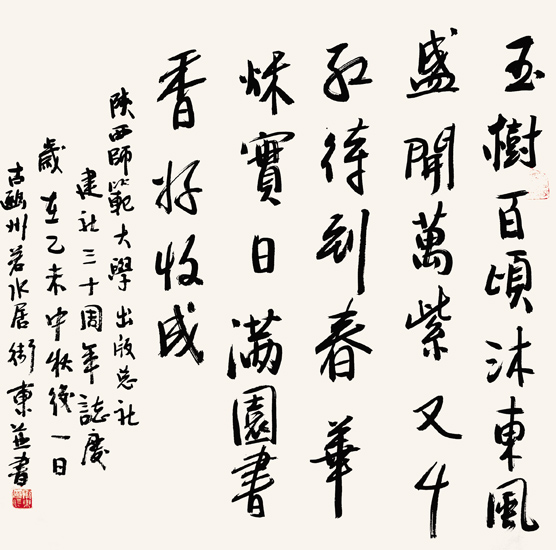 玉樹百頃沐東風
盛開萬紫又千
紅待到春華
秋實日滿園書
香好收成
陝西師範大學出版總社
建社三十周年誌慶
歲在乙未中秋後一日
古鄜州若水居衛東並書